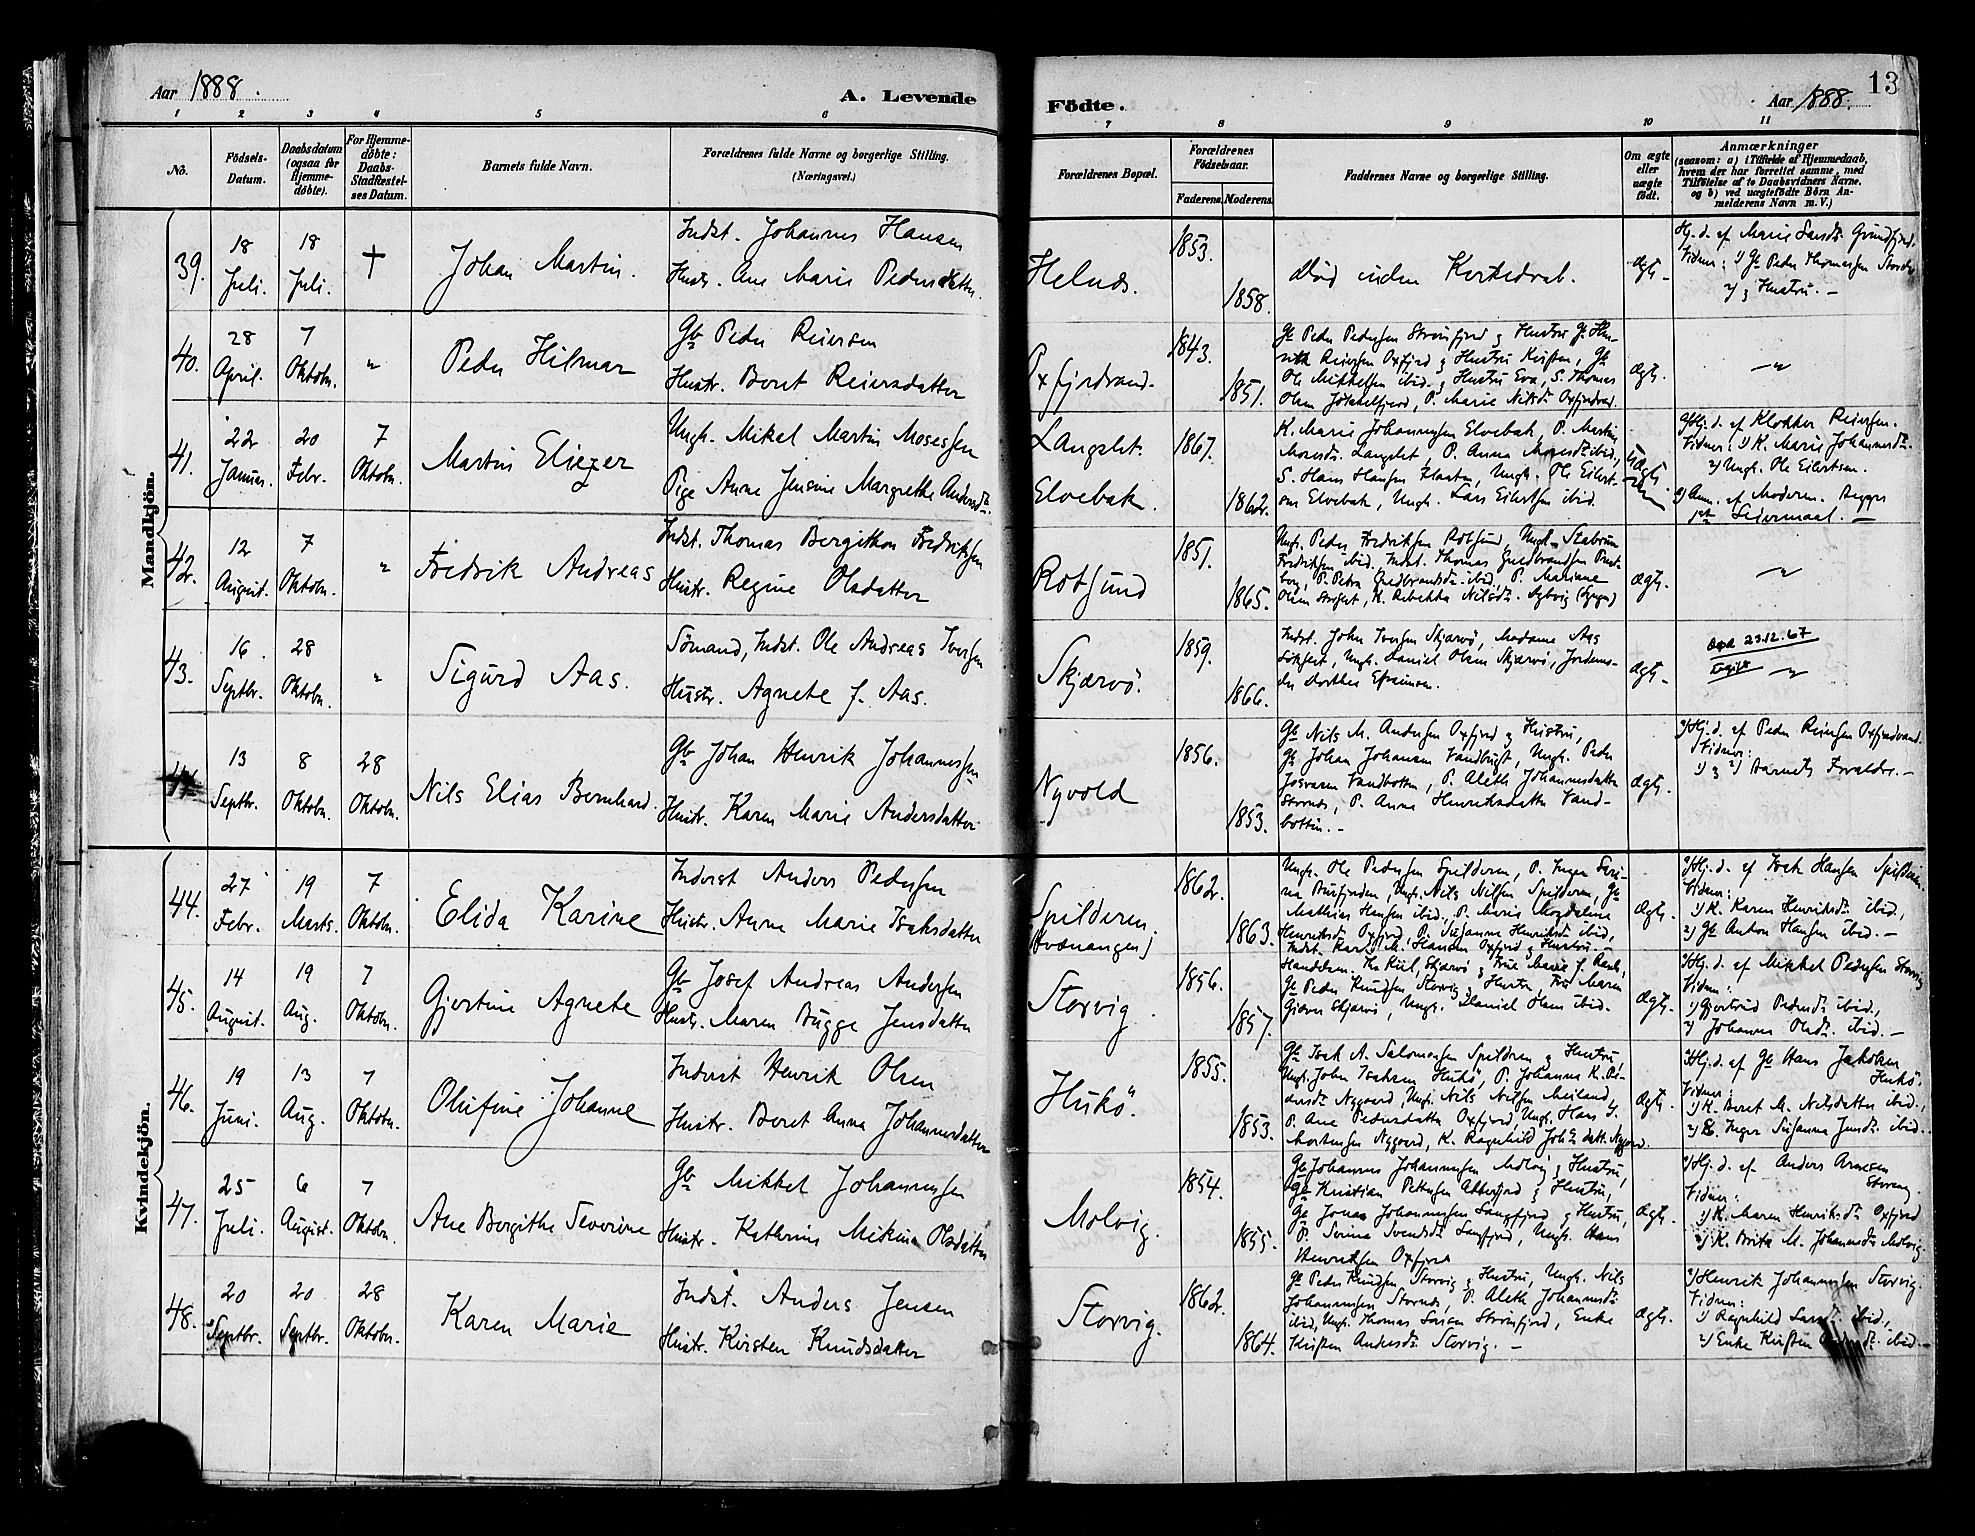 Aar 1888.
A. Levende
Födte.
Aar 1888.
13
1 2 3 4 5 6 7 8 9 10 11
No.
Födsels-
Datum.
Daabsdatum
(ogsaa for
Hjemme-
döbte).
For Hjemme-
döbte:
Daabs-
Stadfæstel-
ses Datum.
Barnets fulde Navn.
Forældrenes fulde Navne og borgerlige Stilling.
(Næringsvei.)
Forældrenes Bopæl.
Forældrenes
Födselsaar.
Faderens.
Moderens.
Faddernes Navne og borgerlige Stilling.
Om ægte
eller
uægte
födt.
Anmærkninger
(saasom: a) i Tilfælde af Hjemmedaab,
hvem der har forrettet samme, med
Tilföielse af to Daabsvidners Navne,
og b) ved uægtefödte Börn An-
melderens Navn m. V.)
Mandkjön.
39.
18
Juli.
18
Juli.
†
Johan Martin.
Indst. Johannes Hansen
Hustr. Ane Marie Pedersdatter.
Helnes.
1853.
1858.
Død uden Kirkedaab.
Ægte.
Hj. d. af Marie Larsdr. Grundfjord.
Vidner: 1) Gb Peder Thomassen
2) g Hustru. —
40.
28
April.
7
Oktobr.
"
Peder Hilmar
Gb Peder Reiersen
Hustr. Beret Reiersdatter
Oxfjordvand.
1843.
1851.
Gb Peder Pedersen Straumfjord g Hustru Gb Hen-
rik Reiersen Oxfjord g Hustru Kirsten, Gb
Ole Mikkelsen ibid. g Hustru Eva, S. Thomas
Olsen Jökkelfjord, P. Marie Nilsdr. Oxfjordvand.
Ægte.
— " —
41.
22
Januar.
20
Febr.
7
Oktobr.
Martin Eliezer
Ungk. Mikal Martin Mosessen
Pige Anne Jensine Margrethe Andersdr.
Langslet.
Elvebak.
1867.
1862.
K. Marie Johannessen Elvebak, P. Martin
Mosesdr. Langslet, P. Anna Mosesdr. ibid.,
S. Hans Hansen Flaaten, Ungk. Ole Eilert-
sen Elvebak, Ungk. Lars Eilertsen ibid.
Uægte.
Hj. d. af Klokker Reiersen.
Vidner: 1) K. Marie Johannesdr.
2) Ungk. Ole Eilertsen.
Anm. af Moderen. Begges
1st Leiermaal. —
42.
12
August.
7
Oktobr.
"
Fredrik Andreas
Indst. Thomas Bergithon Fredriksen
Hustr. Regine Olsdatter
Rotsund
1851.
1865.
Ungk. Peder Fredriksen Rotsund, Ungk.
Fredriksen ibid., Indst. Thomas Guldbrandsen
P. Petra Guldbrandsdr. ibid., P. Mariane
Olsen, K. Rebekka Nilsdr.
Ægte.
"
43.
16
Septbr.
28
Oktobr.
"
Sigurd Aas.
Sömand, Indst. Ole Andreas Iversen
Hustr. Agnete J. Aas.
Skjærvö.
1859.
1866.
Indst. John Iversen Skjærvö, Madame Aas
Ungk. Daniel Olsen Skjærvö, Jordemo-
der Dorthea Efraimsen.
Ægte.
Död 23.12.67
"
13
Septbr.
8
Oktobr.
28
Oktobr.
Nils Elias Bernhard.
Gb Johan Henrik Johannessen
Hustr. Karen Marie Andersdatter
Nyvold
1856.
1853.
Gb Nils M. Andersen Oxfjord g Hustru,
Gb Johan Johansen Vandbugt, Ungk. Peder
Vandbotten, P. Aleth Johannesdatter
Stornes, P. Anna Henriksdatter Vand-
botten. —
Ægte.
Hj. d. af Peder Reiersen Oxfjordvand.
Vidner:
1) g 2) Barnets Forældre. —
Kvindekjön.
44.
27
Febr.
19
Marts.
7
Oktobr.
Elida Karine
Inderst Anders Pedersen
Hustr. Anne Marie Isaksdatter
Spilderen
(Kvænangen)
1862.
1863.
Ungk. Ole Pedersen Spilderen, P. Inger
Burfjorden, Ungk. Nils Nilsen Spilderen, Gb
Mathias Hansen ibid., P. Marie Magdalena
Henriksdr. Oxfjord, P. Susanna Henriksdr. ibid.,
Indst. Karl M. Hansen Oxfjord g Hustru. —
Ægte.
Hj. d. af Isak Hansen Spilderen.
Vidner:
1) K. Karen Henriksdr. ibid.,
2) Gb Anton Hansen ibid. —
45.
14
August.
19
Aug.
7
Oktobr.
Gjertine Agnete
Gb Josef Andreas Andersen
Hustr. Maren Bugge Jensdatter
Storvig.
1856.
1857.
Handelsm. Kiil, Skjærvö g Frue Marie J.
Gb Peder Knudsen Storvig g Hustru, Maren
Giæver Skjærvö, Ungk. Daniel Ham ibid.
Ægte.
Hj. d. af Mikkel Pedersen Storvig
Vidner:
1) Gjertrud Pedersdr. ibid.,
2) Johanna Olsdr. ibid. —
46.
19
Juni.
13
Aug.
7
Oktobr.
Olufine Johanne
Inderst Henrik Olsen
Hustr. Beret Anna Johannesdatter
Hukö.
1855.
1853.
Gb Isak A. Salomonsen Spildren g Hustru,
Ungk. John Isaksen Hukö, P. Johanna K.
Nygaard, Ungk. Nils Nilsen Meiland,
P. Ane Pedersdatter Oxfjord, Ungk. Hans
Mortensen Nygaard, K. Ragnhild Nygaard.
Ægte.
Hj. d. af Gb Hans Jakobsen
Hukö.
Vidner
1) K. Beret M. Nilsdatter ibid.,
2) Inger Susanna ibid. —
47.
25
Juli.
6
August.
7
Oktobr.
Ane Bergitha Severine
Gb Mikkel Johannesen
Hustr. Kathrine Mikina Olsdatter
Molvig.
1854.
1855.
Gb Johannes Johannessen Molvig g Hustru,
Gb Kristian Pettersen Alterfjord g Hustru,
Gb Jonas Johannessen Langfjord g Hustru,
P. Serina Svendsdr. Langfjord, Ungk. Hans
Henriksen Oxfjord
Ægte.
Hj. d. af Anders Arnesen
Storeng.
Vidner:
1) K. Maren Henriksdr. Oxfjord
2) K. Brita M. Johannesdr. Molvig.
48.
20
Septbr.
20
Septbr.
28
Oktobr.
Karen Marie
Indst. Anders Jensen
Hustr. Kirsten Knudsdatter
Storvig.
1862.
1864.
Gb Peder Knudsen Storvig g Hustru, Ungk. Nils
Johannessen Stornes, P. Aleth Johannesdr.
ibid., Ungk. Thomas Larsen Straumfjord, Enke
Kirsten Andersdr. Storvig. —
Ægte.
Henrik Johannessen Storvig.
Vidner:
1) Ragnhild Larsdr. ibid.,
2) Enke Kirsten ibid. —